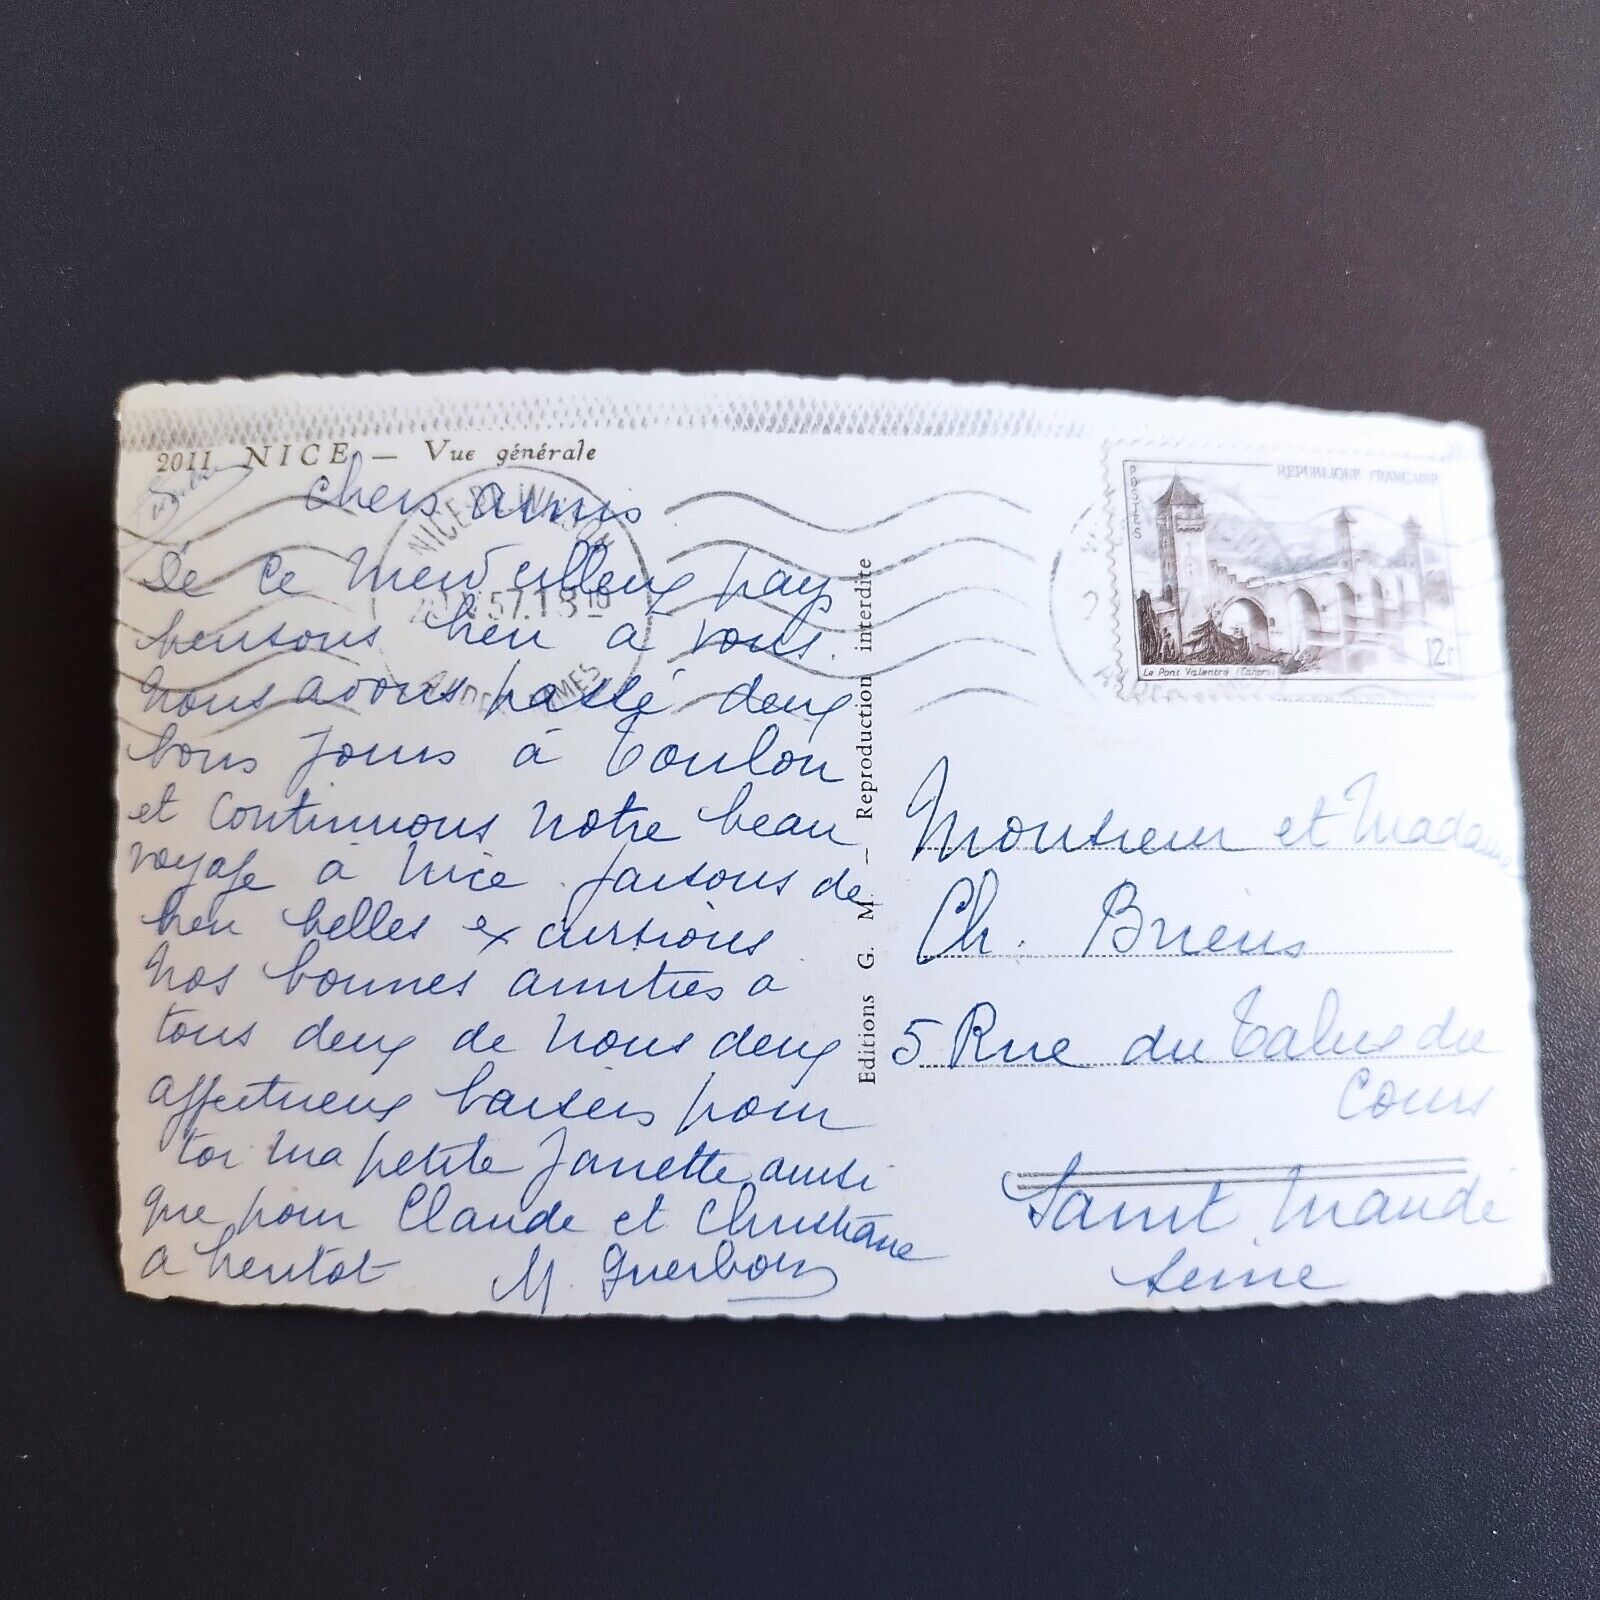 2011 NICE — Vue générale
Chers amis
De ce merveilleux pays
pensons bien à vous.
Nous avons passé deux
bons jours à Toulon
et continuons notre beau
voyage à Nice. faisons de
bien belles excursions
Nos bonnes amitiés a
tous deux de nous deux
affectueux baisers pour
toi ma petite Janette ainsi
que pour Claude et Christiane
a bientot M. Guerbois
Editions G. M. — Reproduction interdite
NICE
57.18
ALPES MARITIMES
POSTES
REPUBLIQUE FRANÇAISE
12F
Le Pont Valentré (Cahors)
Monsieur et Madame
Ch. Briens
5 Rue du Talus du
Cours
Saint Mandé
Seine